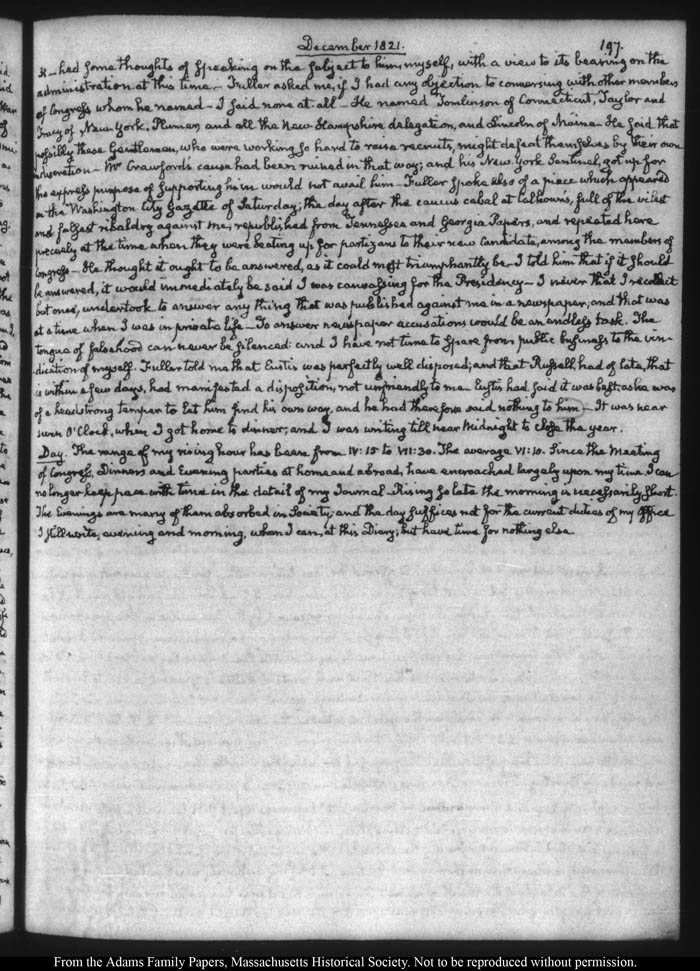 December 1821.
197.
it – had some thoughts of speaking on the subject to him, myself, with a view to its bearing on the
administration at this time – Fuller asked me, if I had any objection to conversing with other members
of Congress whom he named – I said none at all – He named Tomlinson of Connecticut, Taylor and
Tracy of New York. Plumer, and all the New Hampshire delegation, and Lincoln of Maine – He said that
possibly these Gentlemen, who were working so hard to raise recruits, might defeat themselves by their own
Mr Crawford's cause had been ruined in that way; and his New York Sentinel, got up for
his express purpose of supporting him would not avail him – Fuller spoke also of a piece which appeared
in the Washington City Gazette of Saturday; the day after the caucus cabal at Calhoun's, full of the vilest
and falsest ribaldry against me, republished from Tennessee and Georgia Papers, and repeated here
precisely at the time when they were beating up for partizans to their new Candidate, among the members of
Congress – He thought it ought to be answered, as it could most triumphantly be – I told him that if it should
be answered, it would immediately be said I was canvassing for the Presidency – I never that I recollect
but once, undertook to answer any thing that was published against me in a newspaper, and that was
at a time when I was in private life – To answer newspaper accusations would be an endless task. The
tongue of falsehood can never be silenced: and I have not time to spare from public business to the vin-
dication of myself. Fuller told me that Eustis was perfectly well disposed; and that Russell, had of late, that
is within a few days, had manifested a disposition, not unfriendly to me – Eustis had said it was best, as he was
of a headstrong temper to let him find his own way, and he had therefore said nothing to him – It was near
seven O'Clock, when I got home to dinner; and I was writing till near Midnight to close the year.
Day. The range of my rising hour has been from IV:15 to VII:30. The average VI:10. Since the Meeting
of Congress, Dinners and Evening parties at home and abroad, have encroached largely upon my time. I can
no longer keep pace with time in the detail of my Journal – Rising so late the morning is necessarily short.
The Evenings are many of them absorbed in Society; and the day suffices not for the current duties of my Office
I still write, evening and morning, when I can, at this Diary; but have time for nothing else.
From the Adams Family Papers, Massachusetts Historical Society. Not to be reproduced without permission.